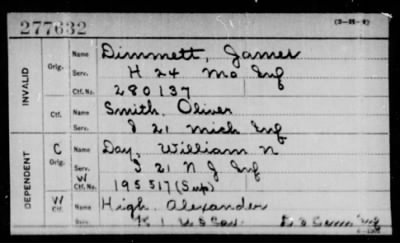 277632
(3-21-1)
INVALID
Orig. Name Dimmett, James
Serv. H 24 Mo Inf
Ctf. No. 280137
Ctf. Name Smith, Oliver
Serv. I 21 Mich Inf
DEPENDENT
C Orig. Name Day, William N
Serv. I 21 N J Inf
W Ctf. No. 195517 (Sup)
W Ctf. Name High, Alexander
K 1 U S Cav.